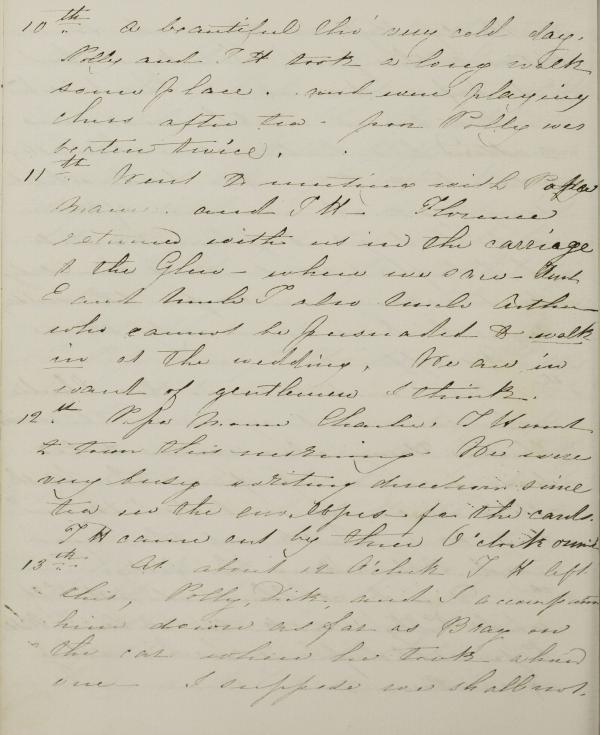 10th. A beautiful tho' very cold day.
Polly and T H took a long walk
some place. and were playing
chess after tea - poor Polly was
beaten twice.
11th. Went to meeting with Papa
Mama. and T H - Florence
returned with us in the carriage
to the Glen - where we saw - Aunt
E and Uncle T also Uncle Arthur
who cannot be persuaded to walk
in at the wedding. We are in
want of gentlemen I think.
12th Papa Mama Charlie. T H went
to town this morning. We were
very busy writing directions since
tea on the envelopes for the cards.
T H came out by three O'clock
13th. At about 12 O'clock T H left
this, Polly, Dick, and I
him down as far as Bray on
the car where he took a
one - I suppose we shall not.